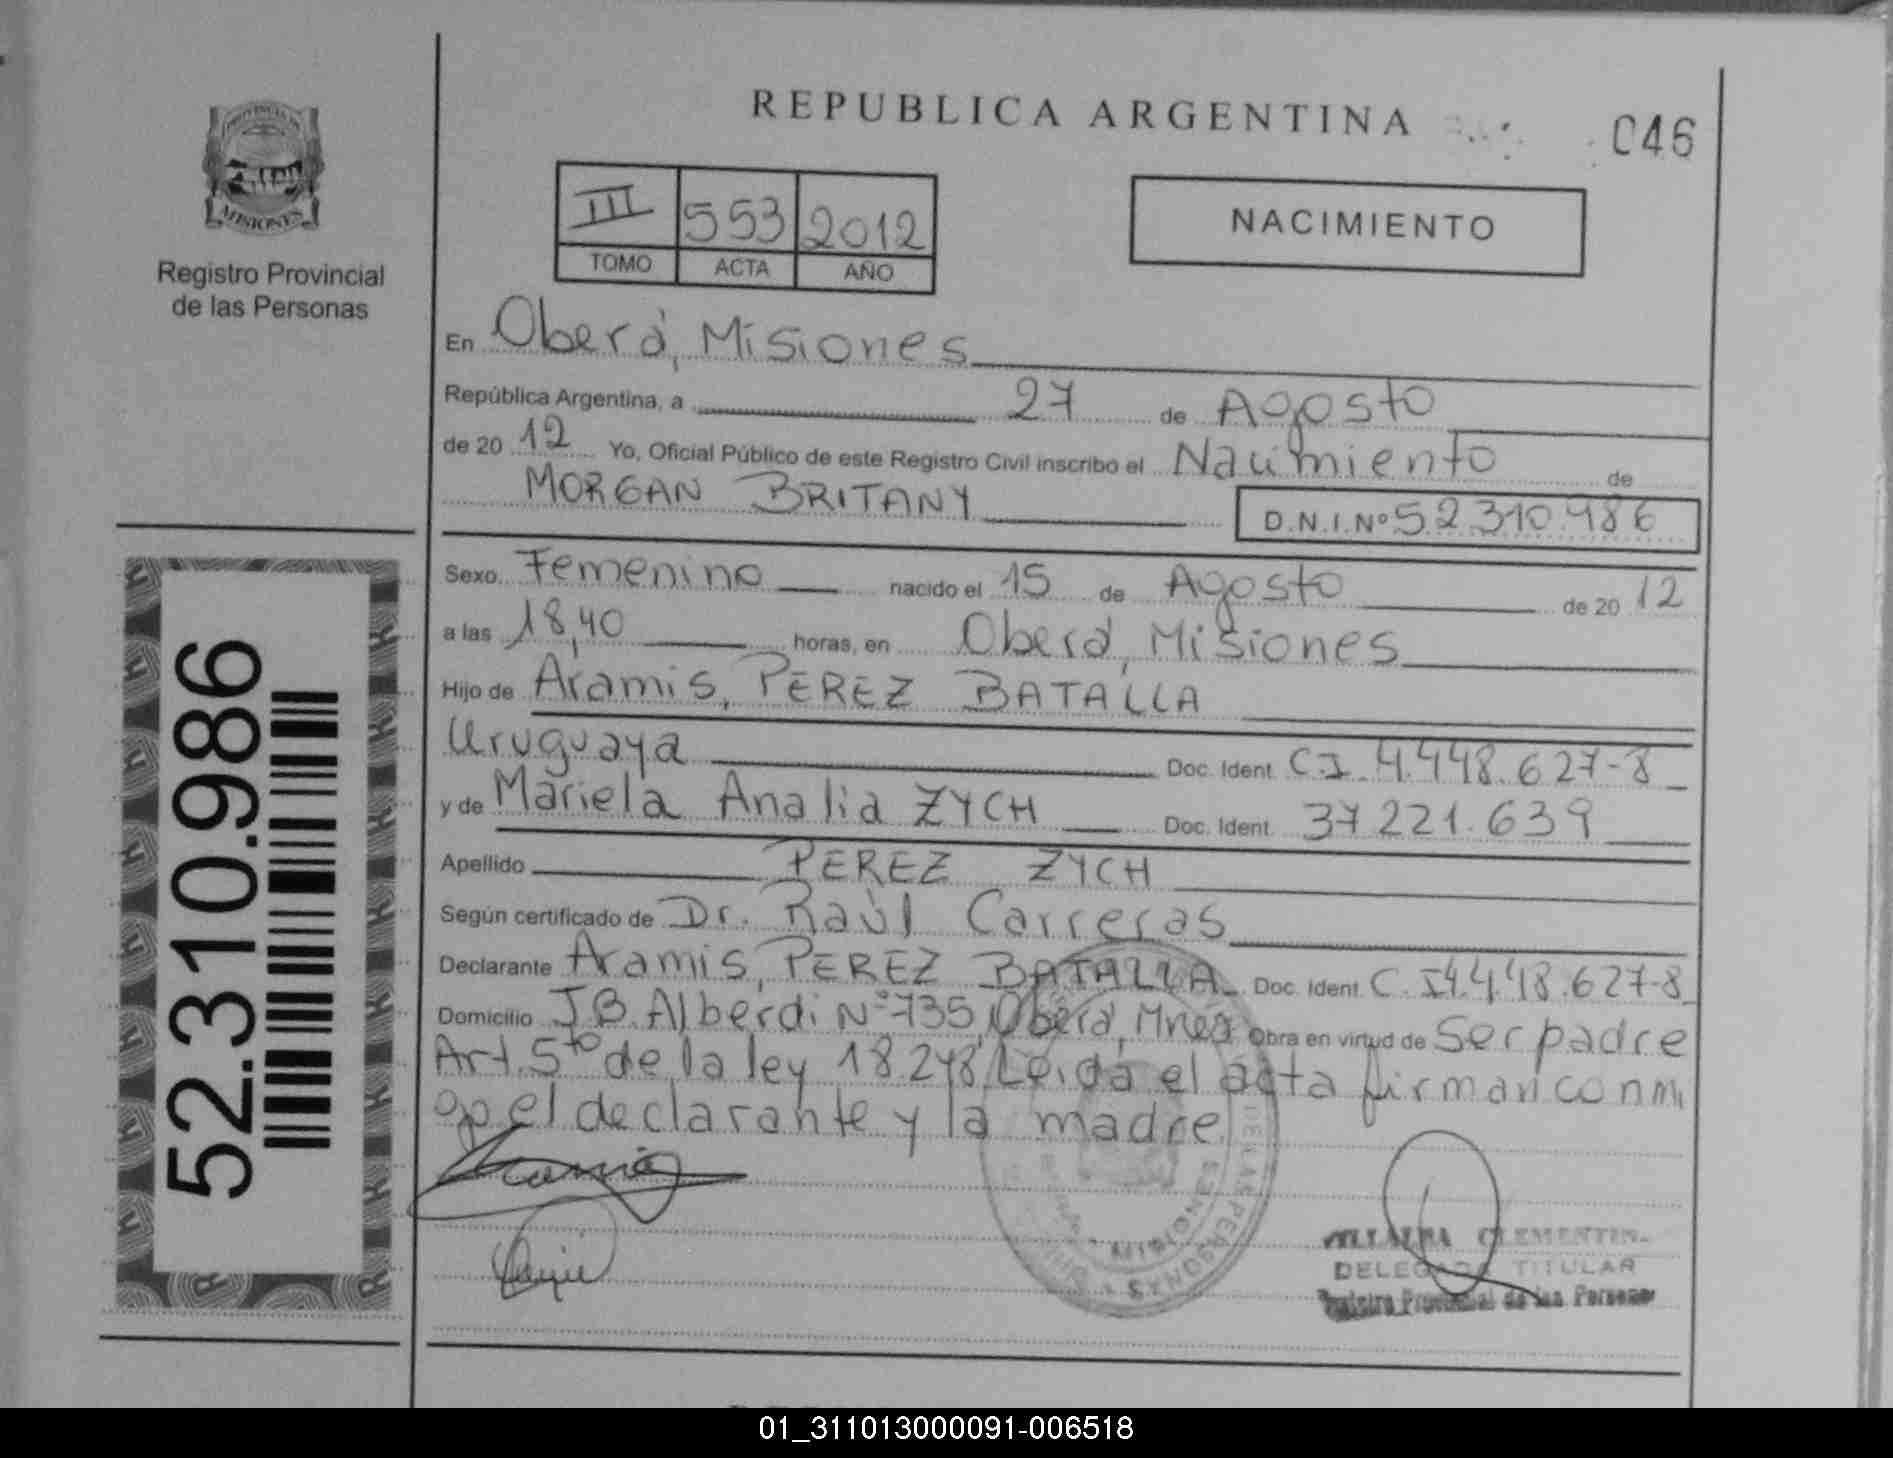 REPUBLICA ARGENTINA
046
PROVINCIA DE
MISIONES
Registro Provincial
de las Personas
III 553 2012
TOMO ACTA AÑO
NACIMIENTO
En Oberá, Misiones
República Argentina, a 27 de Agosto
de 20 12 Yo, Oficial Público de este Registro Civil inscribo el Nacimiento de
MORGAN BRITANY D.N.I.Nº 52.310.986
Sexo Femenino nacido el 15 de Agosto de 20 12
a las 18,40 horas, en Oberá, Misiones
Hijo de Aramis, PEREZ BATALLA
Uruguaya Doc. Ident. C.I. 4.448.627-8
y de Mariela Analia ZYCH Doc. Ident. 37221.639
Apellido PEREZ ZYCH
Según certificado de Dr. Raúl Carreras
Declarante Aramis, PEREZ BATALLA Doc. Ident. C.I4.448.627-8
Domicilio J.B. Alberdi Nº 735, Oberá, Mnes Obra en virtud de Ser padre
Art. 5to de la ley 18.248. Leida el acta firman conmi
go el declarante y la madre
52.310.986
DE LAS PERSONAS
MISIONES
CLEMENTIN
DELEGADA TITULAR
Registro Provincial de las Personas
01_311013000091-006518